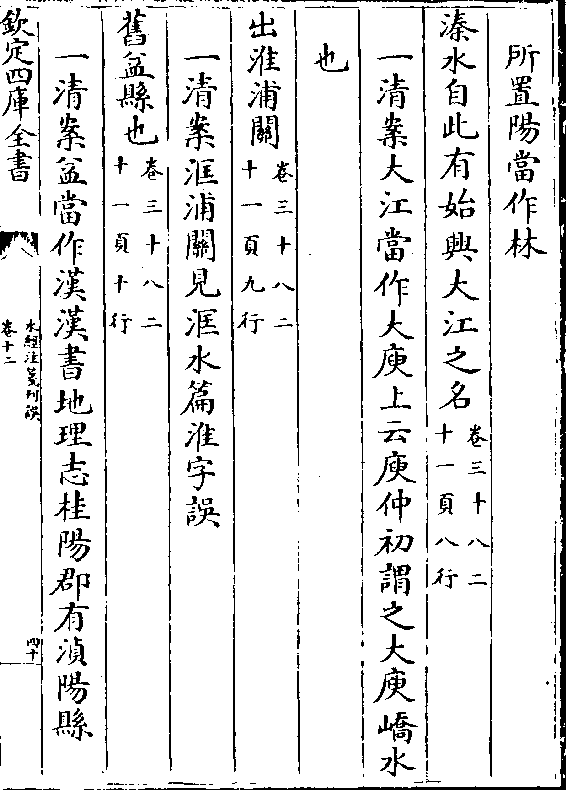 所置陽當作林
溱水自此有始興大江之名卷三十八二十一頁八行
一清案大江當作大庾上云庾仲初謂之大庾嶠水
也
出淮浦關卷三十八二十一頁九行
一清案洭浦關見洭水篇淮字誤
舊盆縣也卷三十八二十一頁十行
一清案盆當作湞漢書地理志桂陽郡有湞陽縣
欽定四庫全書
水經注箋刋誤
卷十二
四十